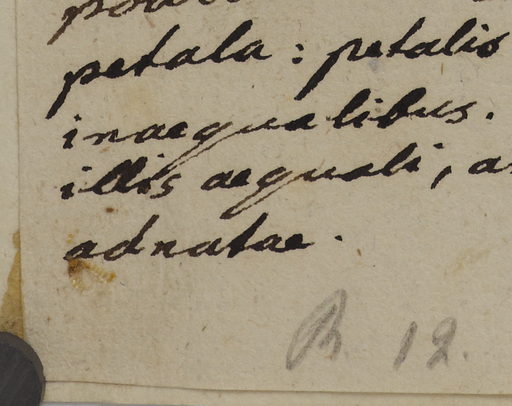 petala : petalis
inaequalibus.
illis aequali, a
adnatae.
B. 12.